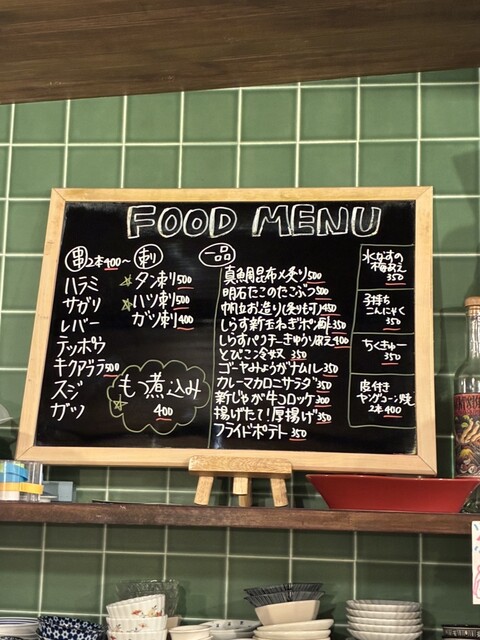 FOOD MENU
串 2本400~
ハラミ
サガリ
レバー
テッポウ
キクアブラ500
スジ
ガツ
刺
☆タン刺500
☆ハツ刺500
ガツ刺400
☆もつ煮込み
400
一品
真鯛昆布〆炙り500
明石たこのたこぶつ500
お造り(炙りも可)450
しらす新玉ねぎポン酢350
しらすパクチーきゅうり和え400
とびこ冷奴 350
ゴーヤみょうがナムル350
カレーマカロニサラダ350
新じゃが牛コロッケ300
揚げたて!厚揚げ350
フライドポテト350
水なすの
梅和え
350
子持ち
こんにゃく
350
ちくきゅー
350
皮付き
ヤングコーン焼
2本400